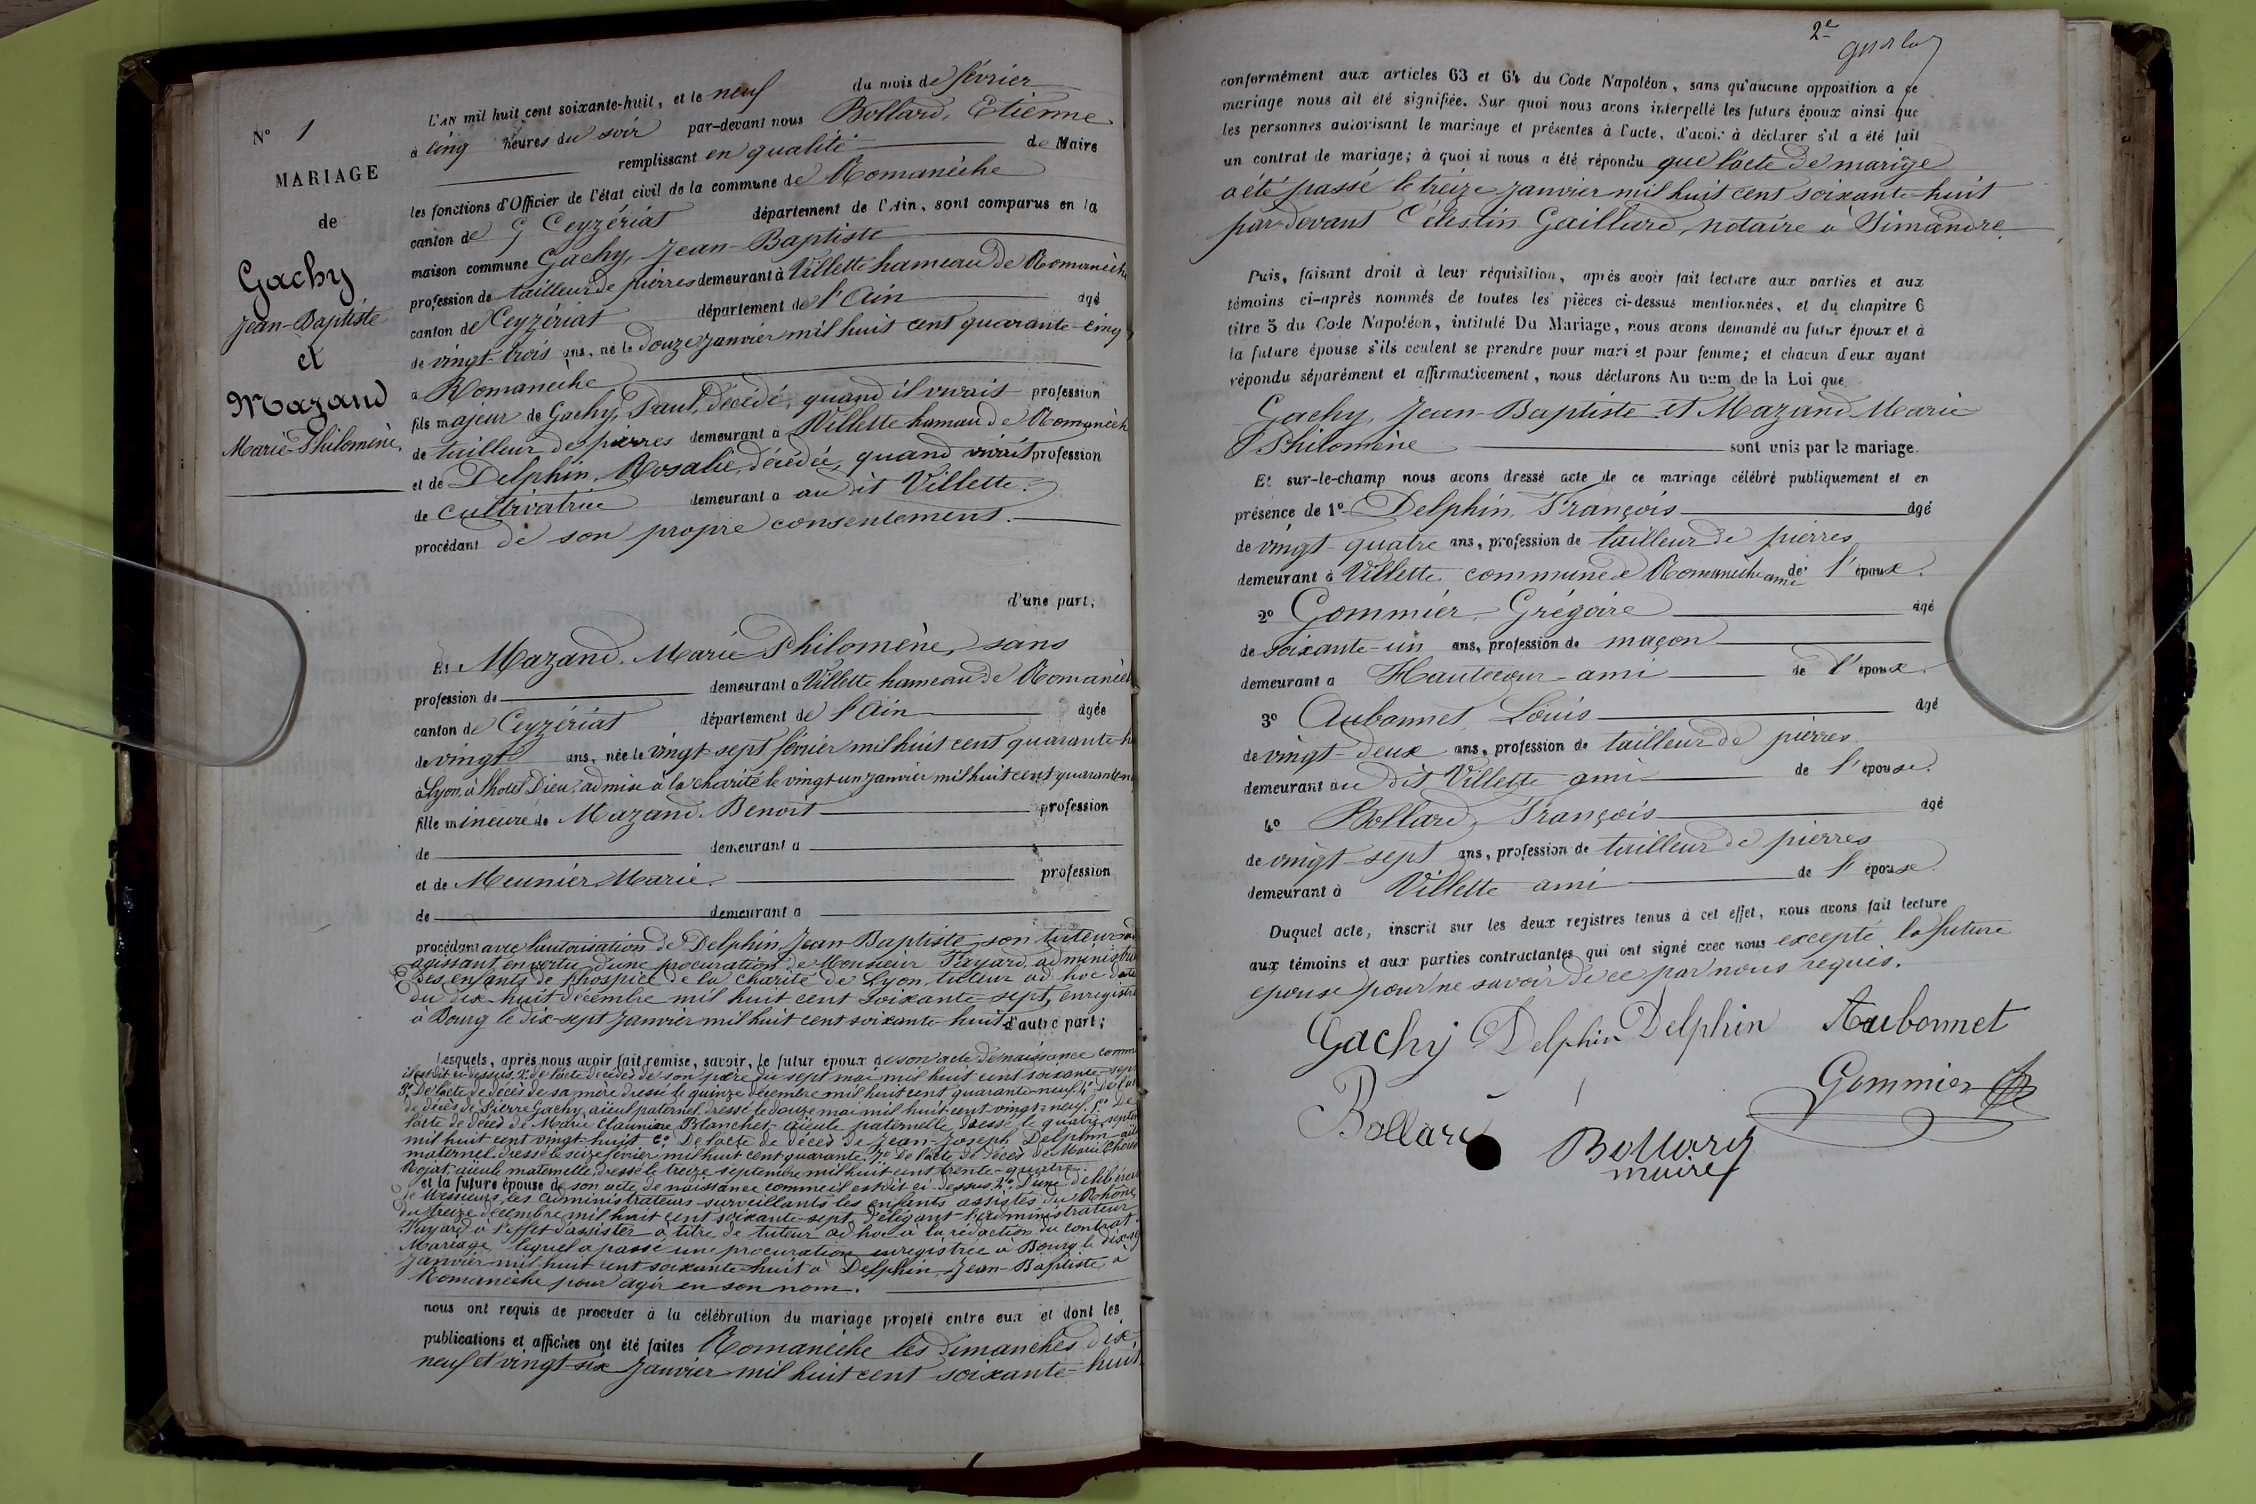 N° 1
MARIAGE
de
Gachy
Jean-Baptiste
et
Mazand
Marie-Philomène
L'AN mil huit cent soixante-huit, et le neuf du mois de février
à cinq heures du soir par-devant nous Bollard, Etienne
remplissant en qualité de Maire
les fonctions d'Officier de l'état civil de la commune de Romanèche
canton de Ceyzériat département de l'Ain, sont comparus en la
maison commune Gachy, Jean-Baptiste
profession de tailleur de pierres demeurant à Villette hameau de Romanèche
canton de Ceyzériat département de l'Ain âgé
de vingt-trois ans, né le douze janvier mil huit cent quarante-cinq
à Romanèche
fils majeur de Gachy, Paul, décédé, quand il vivait profession
de tailleur de pierres demeurant à Villette hamau de Romanèch
et de Delphin, Rosalie, décédée, quand vivait profession
de cultivatrice demeurant à au dit Villette.
procédant de son propre consentement.
d'une part;
Et Mazand, Marie Philomène, sans
profession de demeurant à Villette hameau de Romanèch
canton de Ceyzériat département de l'Ain âgée
de vingt ans, née le vingt-sept février mil huit cent quarante-h
à Lyon, à l'hotel Dieu, admise à la charité le vingt un janvier mil huit cent quarante
fille mineure de Mazand Benoit profession
de demeurant à
et de Meunier Marie. profession
de demeurant à
procédant avec l'autorisation de Delphin, Jean-Baptiste, son tuteur
agissant en vertu d'une procuration de Monsieur Fayard, administra
des enfants de l'hospice de la charité de Lyon, tuteur ad hoc
du dix-huit décembre mil huit cent soixante sept, enregistré
à Bourg le dix-sept janvier mil huit cent soixante huit d'autre part;
Lesquels, après nous avoir fait remise, savoir, le futur époux de son acte de naissance comme
il est dit ci-dessus, 2° de l'acte de décès de son père du sept mai mil huit cent soixante-sept
3° De l'acte de décès de sa mère dressé le quinze décembre mil huit cent quarante-neuf, 4° De l'a
de décès de Pierre Gachy, aïeul paternel dressé le douze mai mil huit cent vingt-neuf, 5° De
l'acte de décès de Marie Blanchet aïeule paternelle dressé le quatre
mil huit cent vingt-huit 6° De l'acte de décès de Jean-Joseph Delphin
maternel dressé le seize février mil huit cent quarante, 7° De l'acte de décès de Marie
aïeule maternelle dressé le treize septembre mil huit cent trente-quatre.
et la future épouse de son acte de naissance comme il est dit ci-dessus, 2° D'une délibéra
de Messieurs les administrateurs surveillants les enfants assistés du Rhône
du treize décembre mil huit cent soixante-sept délégant l'administrateur
Fayard à l'effet d'assister à titre de tuteur ad hoc à la rédaction du contrat
Mariage, lequel a passé une procuration enregistrée à Bourg le dix-s
janvier mil huit cent soixante-huit à Delphin, Jean-Baptiste, à
Romanèche pour agir en son nom.
nous ont requis de procéder à la célébration du mariage projeté entre eux et dont les
publications et affiches ont été faites Romanèche les dimanches dix
neuf et vingt-six janvier mil huit cent soixante-huit
2e
conformément aux articles 63 et 64 du Code Napoléon, sans qu'aucune opposition à ce
mariage nous ait été signifiée. Sur quoi nous avons interpellé les futurs époux ainsi que
les personnes autorisant le mariage et présentes à l'acte, d'avoir à déclarer s'il a été fait
un contrat de mariage; à quoi il nous a été répondu que l'acte de marige
a été passé le treize janvier mil huit cent soixante-huit
par devant Célestin Gaillard, notaire à Simandre
Puis, faisant droit à leur réquisition, après avoir fait lecture aux parties et aux
témoins ci-après nommés de toutes les pièces ci-dessus mentionnées, et du chapitre 6
titre 5 du Code Napoléon, intitulé Du Mariage, nous avons demandé au futur époux et à
la future épouse s'ils veulent se prendre pour mari et pour femme; et chacun d'eux ayant
répondu séparément et affirmativement, nous déclarons Au nom de la Loi que
Gachy, Jean-Baptiste et Mazand Marie
Philomène sont unis par le mariage.
Et sur-le-champ nous avons dressé acte de ce mariage célébré publiquement et en
présence de 1° Delphin, François âgé
de vingt-quatre ans, profession de tailleur de pierres
demeurant à Villette commune de Romanèche ami de l'époux.
2° Gommier Grégoire âgé
de soixante-un ans, profession de maçon
demeurant à Hautecour ami de l'époux.
3° Aubonnet Louis âgé
de vingt-deux ans, profession de tailleur de pierres
demeurant au dit Villette ami de l'épouse.
4° Bollard, François âgé
de vingt-sept ans, profession de tailleur de pierres
demeurant à Villette ami de l'épouse
Duquel acte, inscrit sur les deux registres tenus à cet effet, nous avons fait lecture
aux témoins et aux parties contractantes qui ont signé avec nous excepté la future
épouse pour ne savoir de ce par nous requis.
Gachy Delphin Delphin Aubonnet
Gommier
Bollard
Bollard
maire